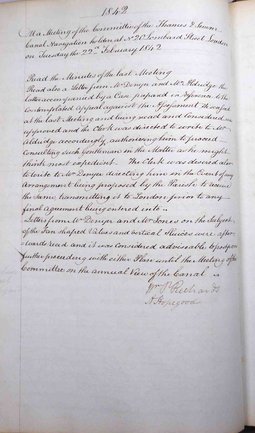 1842
At a Meeting of the Committee of the Thames & Severn
Canal Navigation holden at No 20 Lombard Street London
on Tuesday the 22nd February 1842
Read the Minutes of the last Meeting
Read also a letter from Mr Denyer and Mr Aldridge the
latter accompanied by a Case prepared in reference to the
Contemplated Appeal against the Assessment
at the last Meeting and being read and Considered was
approved and the Clerk was directed to write to Mr
Aldridge accordingly authorizing him to proceed
Consulting such Gentleman in the Matter as he might
think most expedient. The Clerk was desired also
to write to Mr Denyer directing him in the Event of any
Arrangement being proposed by the Parish to
the Same transmitting it to London prior to any
final agreement being entered into
Letters from Mr Denyer and Mr Jones on the Subject
of the Fan shaped Valves and vertical Sluices were after-
wards read and it was considered adviseable to postpone
further proceeding with either Plan until the Meeting of the
Committee on the annual View of the Canal
Richards
Hopegood